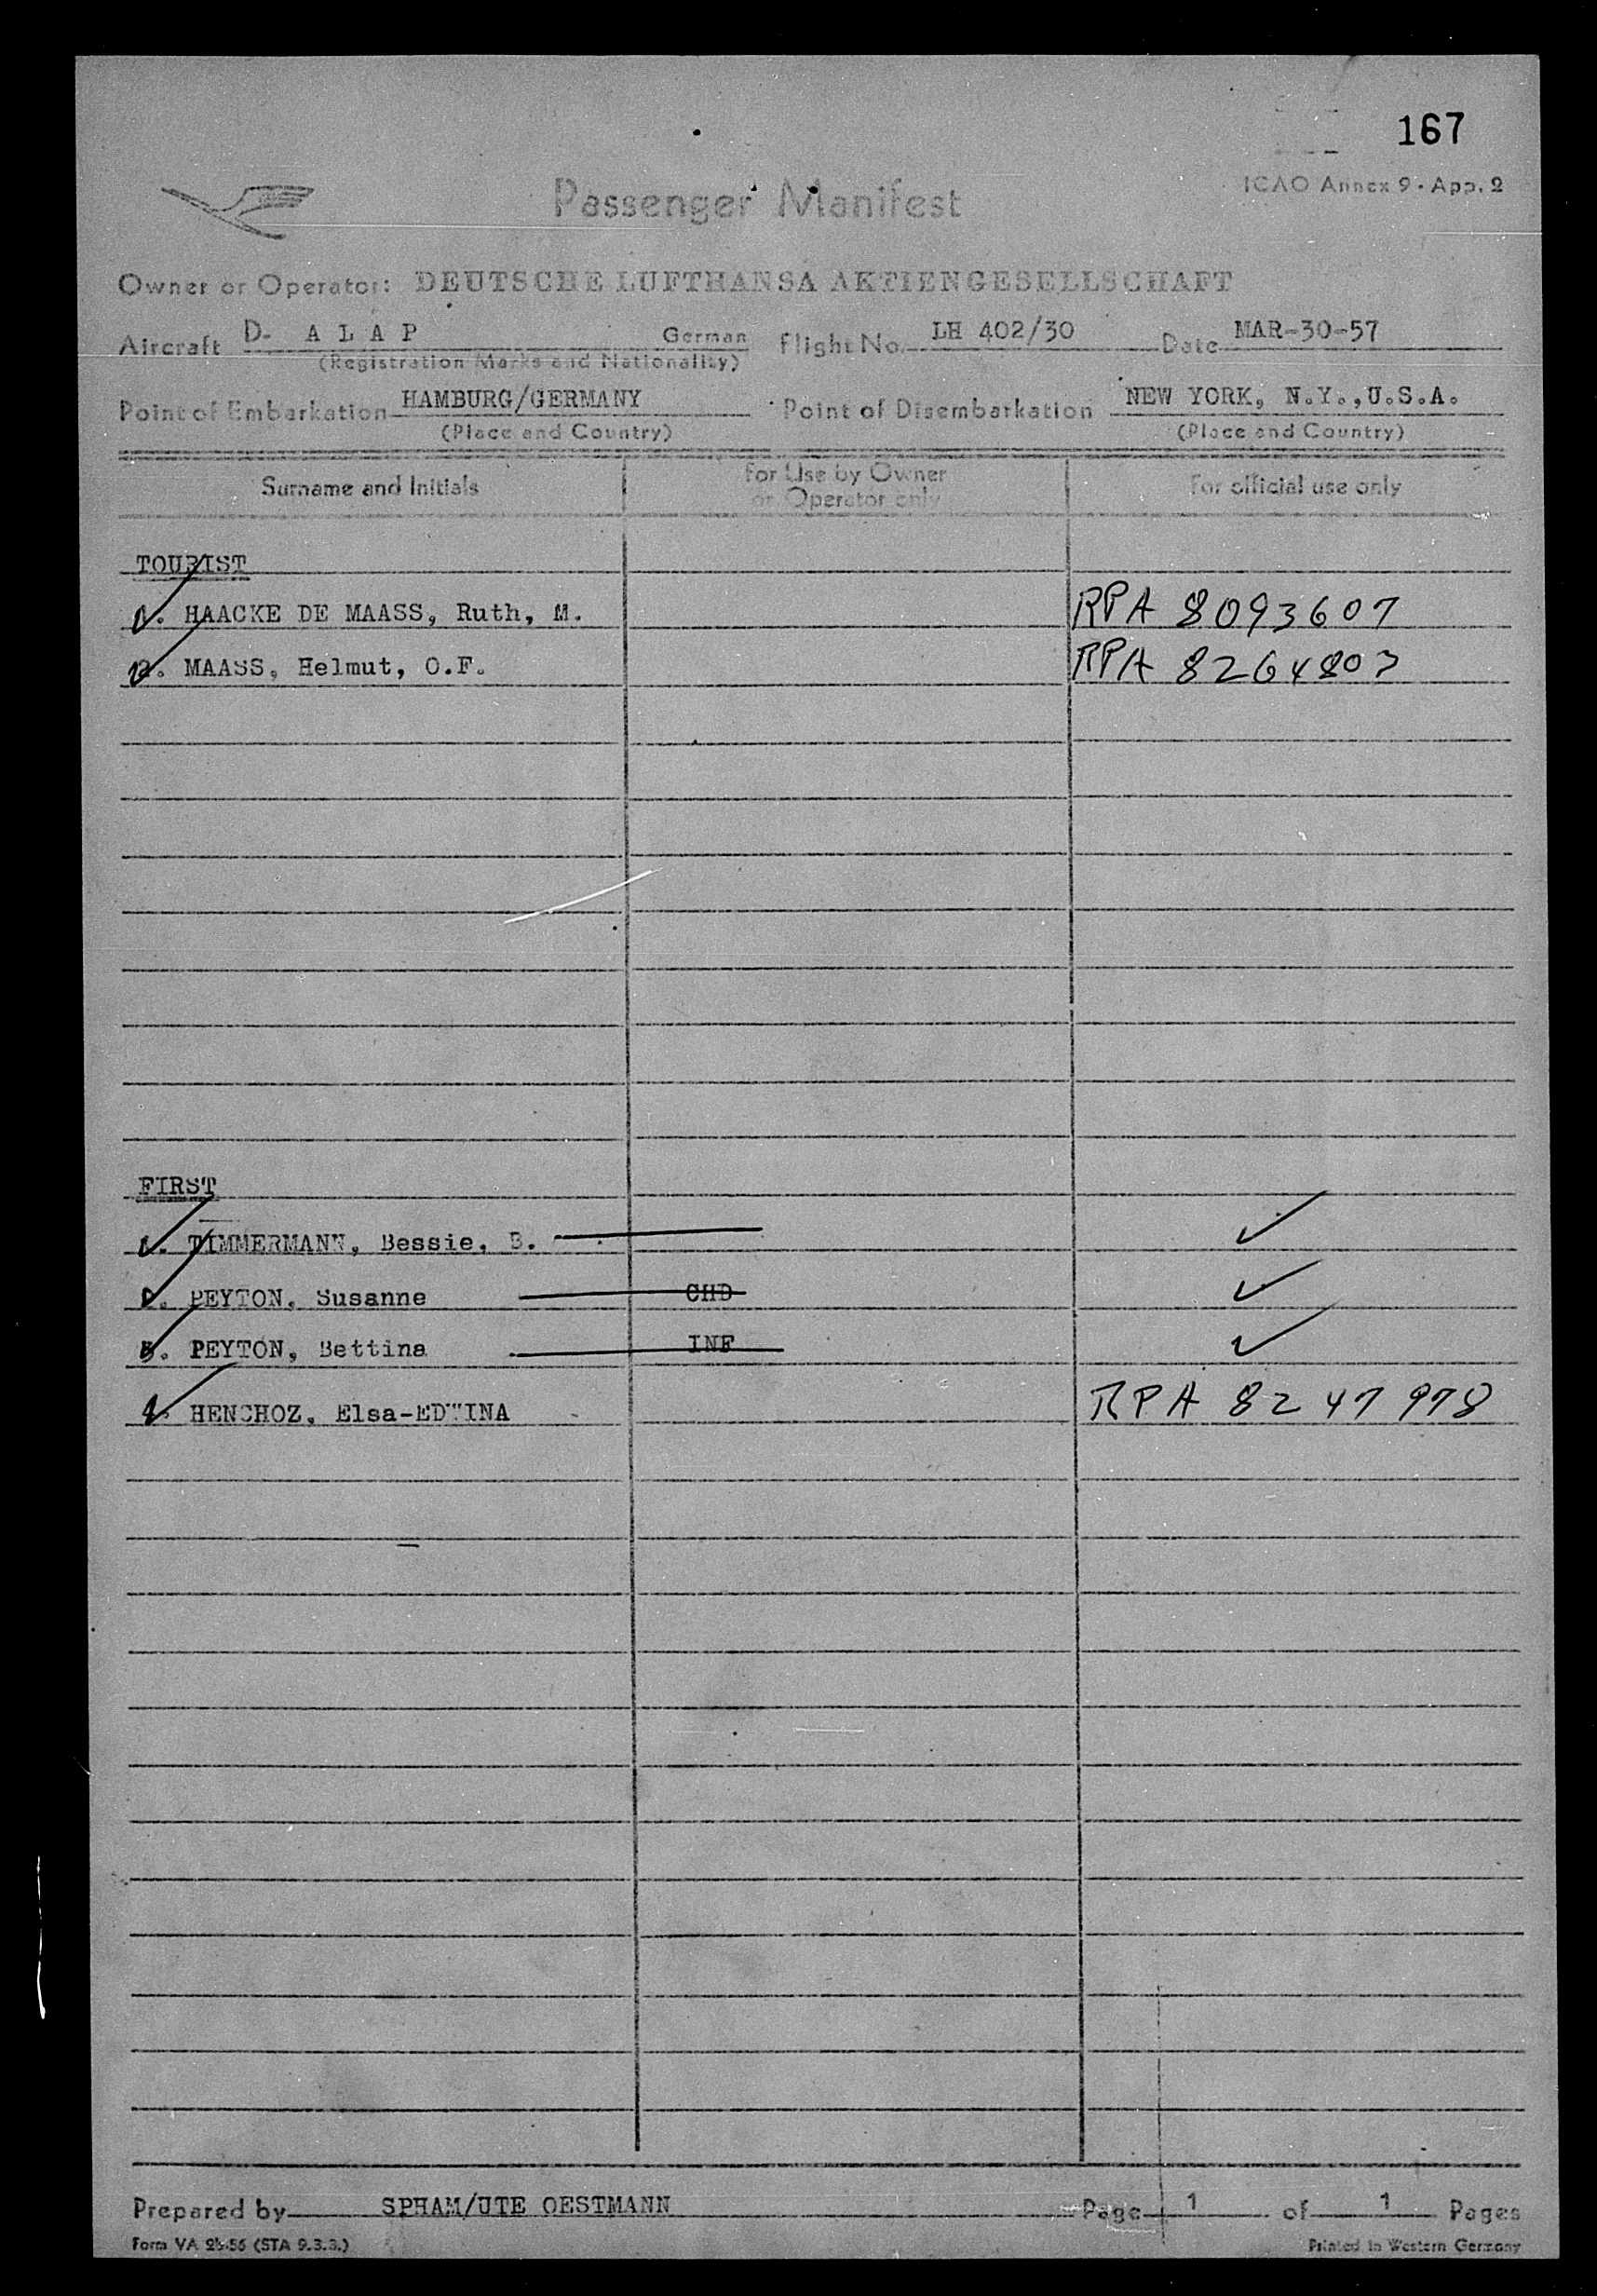 167
ICAO Annex 9 · App. 2
Passenger Manifest
Owner or Operator: DEUTSCHE LUFTHANSA AKTIENGESELLSCHAFT
Aircraft D- A L A P German Flight No. LH 402/30 Date MAR-30-57
(Registration Marks and Nationality)
Point of Embarkation HAMBURG/GERMANY Point of Disembarkation NEW YORK, N.Y.,U.S.A.
(Place and Country) (Place and Country)
Surname and Initials For Use by Owner or Operator only For official use only
TOURIST
1. HAACKE DE MAASS, Ruth, M. RPA 8093607
2. MAASS, Helmut, O.F. RPA
FIRST
1. TIMMERMANN, Bessie, B. ✓
2. PEYTON, Susanne CHD ✓
3. PEYTON, Bettina INF ✓
4. HENCHOZ, Elsa-EDWINA RPA 8247978
Prepared by SPHAM/UTE OESTMANN Page 1 of 1 Pages
Form VA (STA 9.3.3.) Printed in Western Germany